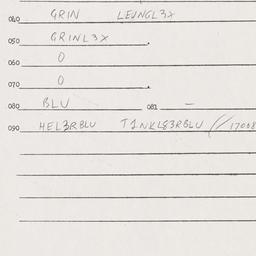 040 GRIN LEUNGL3X
050 GRINL3X .
060 0
070 0 .
080 BLU . 081 –
090 HEL3RBLU T1NKLG3RBLU // 17008